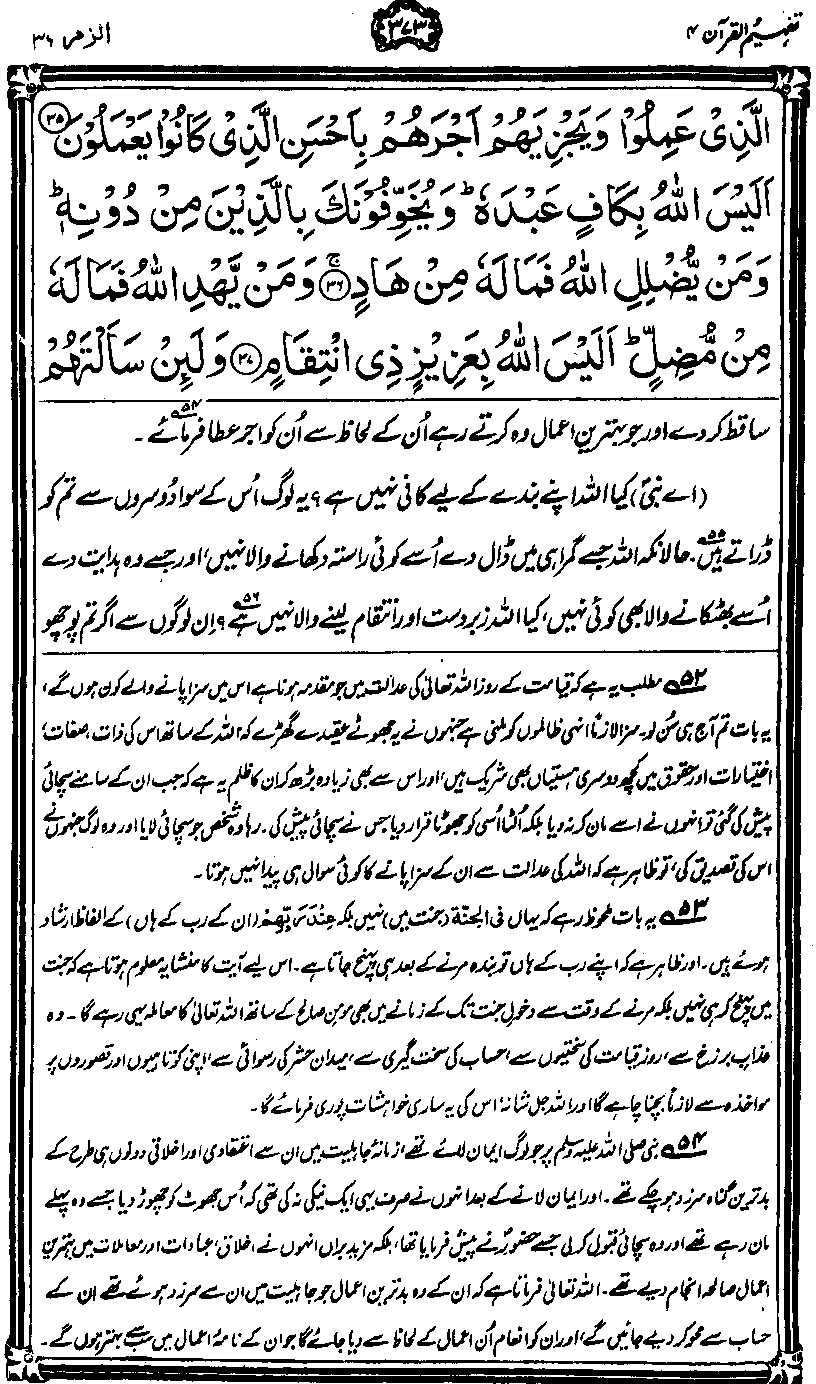 تفہیم القرآن ۴
۳۷۳
الزمر ۳۹
الَّذِیْ عَمِلُوْا وَیَجْزِیَهُمْ اَجْرَهُمْ بِاَحْسَنِ الَّذِیْ كَانُوْا یَعْمَلُوْنَ ۝۳۵
اَلَیْسَ اللّٰهُ بِكَافٍ عَبْدَهٗ ؕ وَیُخَوِّفُوْنَكَ بِالَّذِیْنَ مِنْ دُوْنِهٖ ؕ
وَمَنْ یُّضْلِلِ اللّٰهُ فَمَا لَهٗ مِنْ هَادٍ ۝۳۶ ۚ وَمَنْ یَّهْدِ اللّٰهُ فَمَا لَهٗ
مِنْ مُّضِلٍّ ؕ اَلَیْسَ اللّٰهُ بِعَزِیْزٍ ذِی انْتِقَامٍ ۝۳۷ وَلَىِٕنْ سَاَلْتَهُمْ
ساقط کر دے اور جو بہترین اعمال وہ کرتے رہے اُن کے لحاظ سے اُن کو اجر عطا فرمائے۵۴۔
(اے نبیؐ) کیا اللہ اپنے بندے کے لیے کافی نہیں ہے؟ یہ لوگ اُس کے سوا دُوسروں سے تم کو
ڈراتے ہیں۵۵۔ حالانکہ اللہ جسے گمراہی میں ڈال دے اُسے کوئی راستہ دکھانے والا نہیں، اور جسے وہ ہدایت دے
اُسے بھٹکانے والا بھی کوئی نہیں، کیا اللہ زبردست اور انتقام لینے والا نہیں ہے۵۶؟ اِن لوگوں سے اگر تم پوچھو
۵۲ مطلب یہ ہے کہ قیامت کے روز اللہ تعالیٰ کی عدالت میں جو مقدمہ ہونا ہے اس میں سزا پانے والے کون ہوں گے،
یہ بات تم آج ہی سُن لو۔ سزا لازماً اُنہی ظالموں کو ملنی ہے جنہوں نے یہ جھوٹے عقیدے گھڑے کہ اللہ کے ساتھ اس کی ذات، صفات،
اختیارات اور حقوق میں کچھ دوسری ہستیاں بھی شریک ہیں، اور اس سے بھی زیادہ بڑھ کر ان کا ظلم یہ ہے کہ جب ان کے سامنے سچائی
پیش کی گئی تو انہوں نے اسے مان کر نہ دیا بلکہ اُلٹا اُسی کو جھوٹا قرار دیا جس نے سچائی پیش کی۔ رہا وہ شخص جو سچائی لایا اور وہ لوگ جنہوں نے
اس کی تصدیق کی، تو ظاہر ہے کہ اللہ کی عدالت سے ان کے سزا پانے کا کوئی سوال ہی پیدا نہیں ہوتا۔
۵۳ یہ بات ملحوظ رہے کہ یہاں فی الجنۃ (جنت میں) نہیں بلکہ عِنْدَ رَبِّهِمْ (ان کے رب کے ہاں) کے الفاظ ارشاد
ہوئے ہیں۔ اور ظاہر ہے کہ اپنے رب کے ہاں تو بندہ مرنے کے بعد ہی پہنچ جاتا ہے۔ اس لیے آیت کا منشا یہ معلوم ہوتا ہے کہ جنت
میں پہنچ کر ہی نہیں بلکہ مرنے کے وقت سے دخولِ جنت تک کے زمانے میں بھی مومن صالح کے ساتھ اللہ تعالیٰ کا معاملہ یہی رہے گا۔ وہ
عذاب برزخ سے، روز قیامت کی سختیوں سے، حساب کی سخت گیری سے، میدان حشر کی رسوائی سے، اپنی کوتاہیوں اور قصوروں پر
مواخذہ سے لازماً بچنا چاہے گا اور اللہ جل شانہٗ اس کی یہ ساری خواہشات پوری فرمائے گا۔
۵۴ نبی صلی اللہ علیہ وسلم پر جو لوگ ایمان لائے تھے زمانۂ جاہلیت میں ان سے اعتقادی اور اخلاقی دونوں ہی طرح کے
بدترین گناہ سرزد ہو چکے تھے۔ اور ایمان لانے کے بعد انہوں نے صرف یہی ایک نیکی نہ کی تھی کہ اُس جھوٹ کو چھوڑ دیا جسے وہ پہلے
مان رہے تھے اور وہ سچائی قبول کرلی جسے حضورؐ نے پیش فرمایا تھا، بلکہ مزید براں انہوں نے اخلاق، عبادات اور معاملات میں بہترین
اعمالِ صالحہ انجام دیے تھے۔ اللہ تعالیٰ فرماتا ہے کہ ان کے وہ بدترین اعمال جو جاہلیت میں ان سے سرزد ہوئے تھے ان کے
حساب سے محو کر دیے جائیں گے، اور ان کو انعام اُن اعمال کے لحاظ سے دیا جائے گا جو ان کے نامۂ اعمال میں سب سے بہتر ہوں گے۔